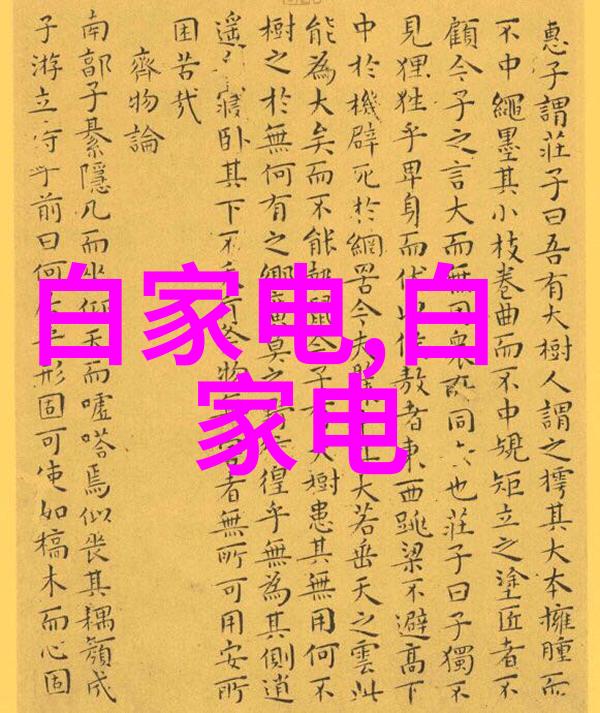 惠子謂莊子曰吾有大樹人謂之樗其大本擁腫而
不中繩墨其小枝卷曲而不中規矩立之塗匠者不
顧今子之言大而無用衆所同去也莊子曰子獨不
見狸狌乎卑身而伏以候敖者東西跳梁不避高下
中於機辟死於網罟今夫大若垂天之雲此
能為大矣而不能鼠今子大樹患其無用何不
樹之於無何有之鄉廣莫之彷徨乎無為其側逍
遙寢臥其下不斧物害者無所可用安所
困苦哉
齊物論
南郭子綦隱几而坐仰天而噓嗒焉似喪其耦顏成
子游立侍乎前曰何乎形固可使如槁木而心固
白家电,白
家电